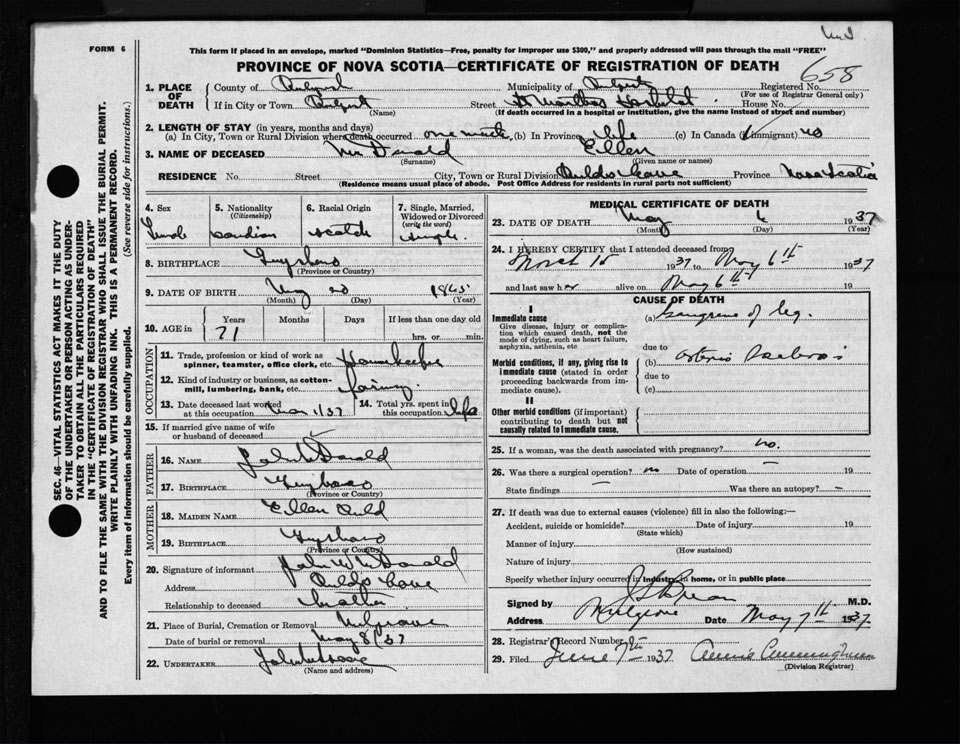 FORM 6
This form if placed in an envelope, marked "Dominion Statistics—Free, penalty for improper use $300," and properly addressed will pass through the mail "FREE"
PROVINCE OF NOVA SCOTIA—CERTIFICATE OF REGISTRATION OF DEATH
658
SEC. 46—VITAL STATISTICS ACT MAKES IT THE DUTY
OF THE UNDERTAKER OR PERSON ACTING AS UNDER-
TAKER TO OBTAIN ALL THE PARTICULARS REQUIRED
IN THE "CERTIFICATE OF REGISTRATION OF DEATH"
AND TO FILE THE SAME WITH THE DIVISION REGISTRAR WHO SHALL ISSUE THE BURIAL PERMIT.
WRITE PLAINLY WITH UNFADING INK. THIS IS A PERMANENT RECORD.
Every item of information should be carefully supplied. (See reverse side for instructions.)
1. PLACE OF DEATH
County of
Municipality of
Registered No.
(For use of Registrar General only)
If in City or Town
(Name)
Street St Marthas Hospital
House No.
(If death occurred in a hospital or institution, give the name instead of street and number)
2. LENGTH OF STAY (in years, months and days)
(a) In City, Town or Rural Division where death occurred one week (b) In Province life (c) In Canada (if immigrant) no
3. NAME OF DECEASED McDonald Ellen
(Surname) (Given name or names)
RESIDENCE No. Street City, Town or Rural Division Aulds Cove Province Nova Scotia
(Residence means usual place of abode. Post Office Address for residents in rural parts not sufficient)
4. Sex
5. Nationality (Citizenship)
6. Racial Origin Scotch
7. Single, Married, Widowed or Divorced (write the word) Single
8. BIRTHPLACE Guysboro
(Province or Country)
9. DATE OF BIRTH
(Month) (Day) (Year)
10. AGE in Years Months Days If less than one day old
71 hrs. or min.
OCCUPATION
11. Trade, profession or kind of work as spinner, teamster, office clerk, etc. Housekeeper
12. Kind of industry or business, as cotton-mill, lumbering, bank, etc.
13. Date deceased last worked at this occupation
14. Total yrs. spent in this occupation life
15. If married give name of wife or husband of deceased
FATHER
16. NAME John McDonald
17. BIRTHPLACE Guysboro
(Province or Country)
MOTHER
18. MAIDEN NAME Ellen Auld
19. BIRTHPLACE Guysboro
(Province or Country)
20. Signature of informant John W McDonald
Address Aulds Cove
Relationship to deceased
21. Place of Burial, Cremation or Removal Mulgrave
Date of burial or removal May 8/37
22. UNDERTAKER
(Name and address)
MEDICAL CERTIFICATE OF DEATH
23. DATE OF DEATH May 6 1937
(Month) (Day) (Year)
24. I HEREBY CERTIFY that I attended deceased from
March 15 1937 to May 6th 1937
and last saw her alive on May 6th 19
CAUSE OF DEATH
I
Immediate cause
Give disease, injury or complication which caused death, not the mode of dying, such as heart failure, asphyxia, asthenia, etc
(a) Gangrene of leg.
due to
Morbid conditions, if any, giving rise to immediate cause (stated in order proceeding backwards from immediate cause).
(b) arterio sclerosis
due to
(c)
II
Other morbid conditions (if important) contributing to death but not causally related to immediate cause.
25. If a woman, was the death associated with pregnancy? no.
26. Was there a surgical operation? no Date of operation — 19
State findings — Was there an autopsy? —
27. If death was due to external causes (violence) fill in also the following:—
Accident, suicide or homicide? Date of injury 19
(State which)
Manner of injury
(How sustained)
Nature of injury
Specify whether injury occurred in industry, in home, or in public place
Signed by M.D.
Address Mulgrave Date May 7th 1937
28. Registrar's Record Number
29. Filed June 7th 1937 Annie Cunningham
(Division Registrar)